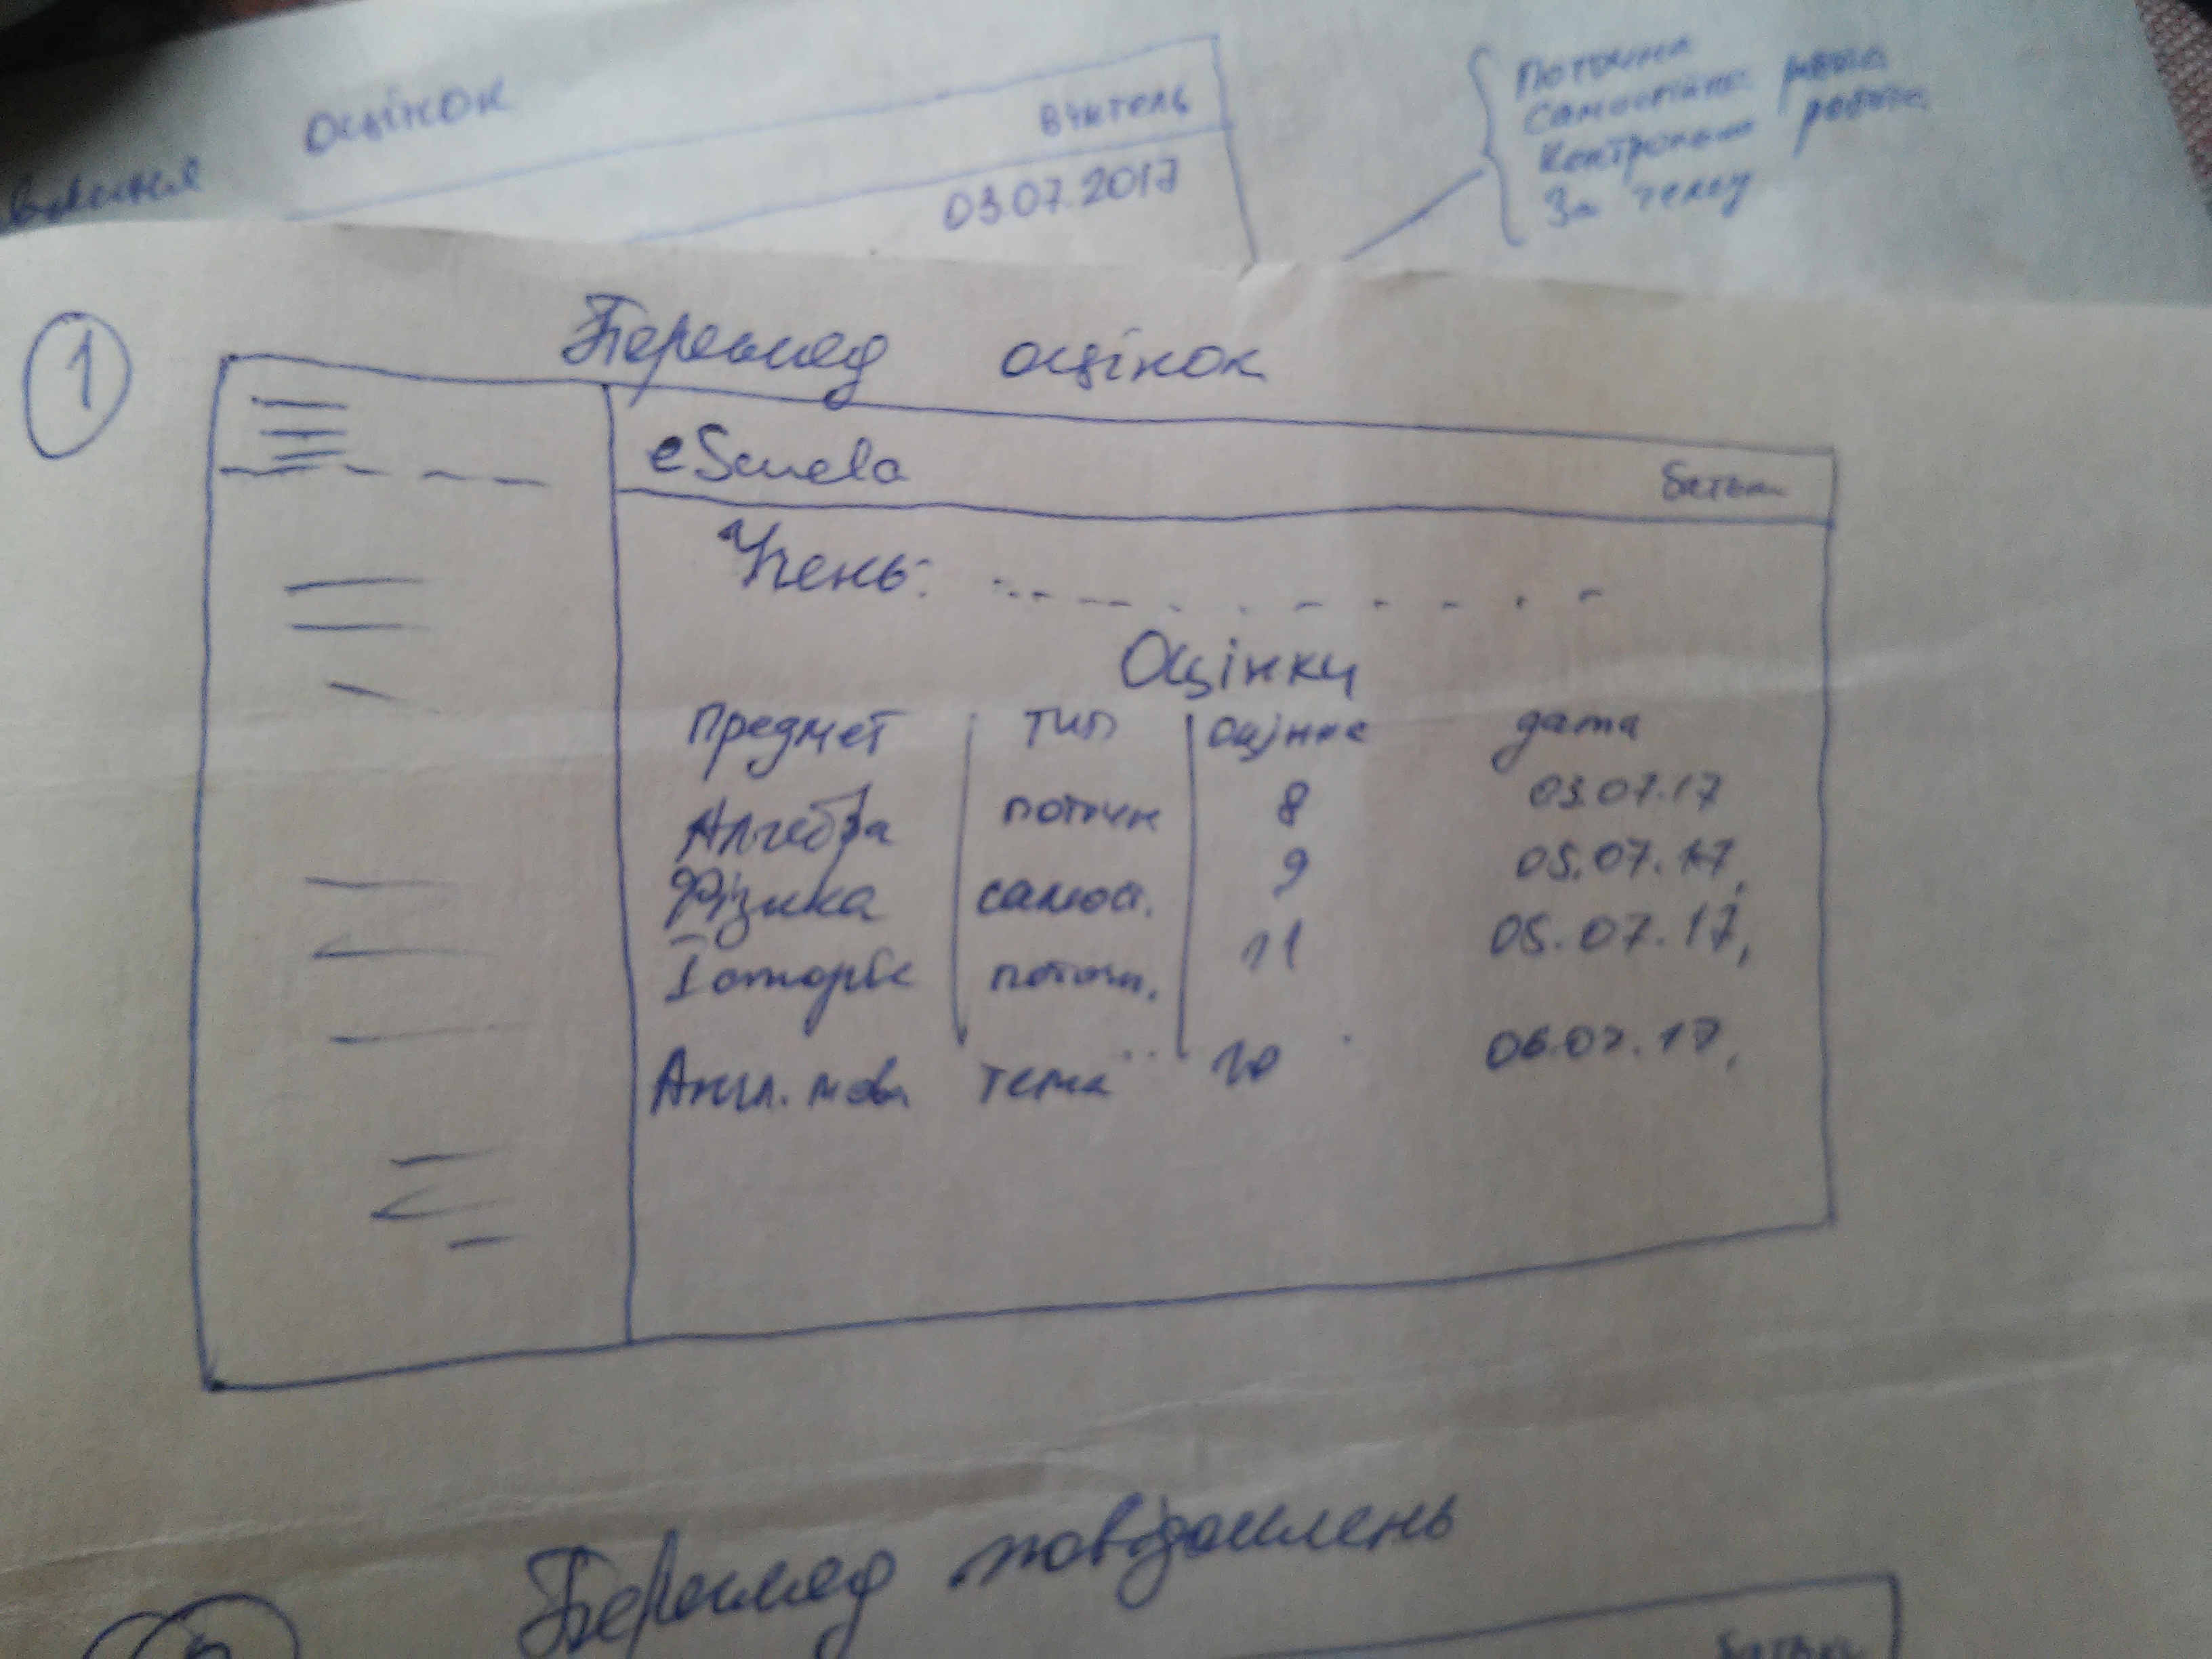 оцінок
вчитель
03.07.2017
Поточна
Самостійна робота
Контрольна робота
За тему
1
Перегляд оцінок
eScuela
батьки
Учень:
Оцінки
Предмет тип оцінка дата
Алгебра поточн 8 03.07.17
Фізика самост. 9 05.07.17,
Історія поточн. 11 05.07.17,
Англ. мова тема 10 06.07.17,
Перегляд повідомлень
батьки